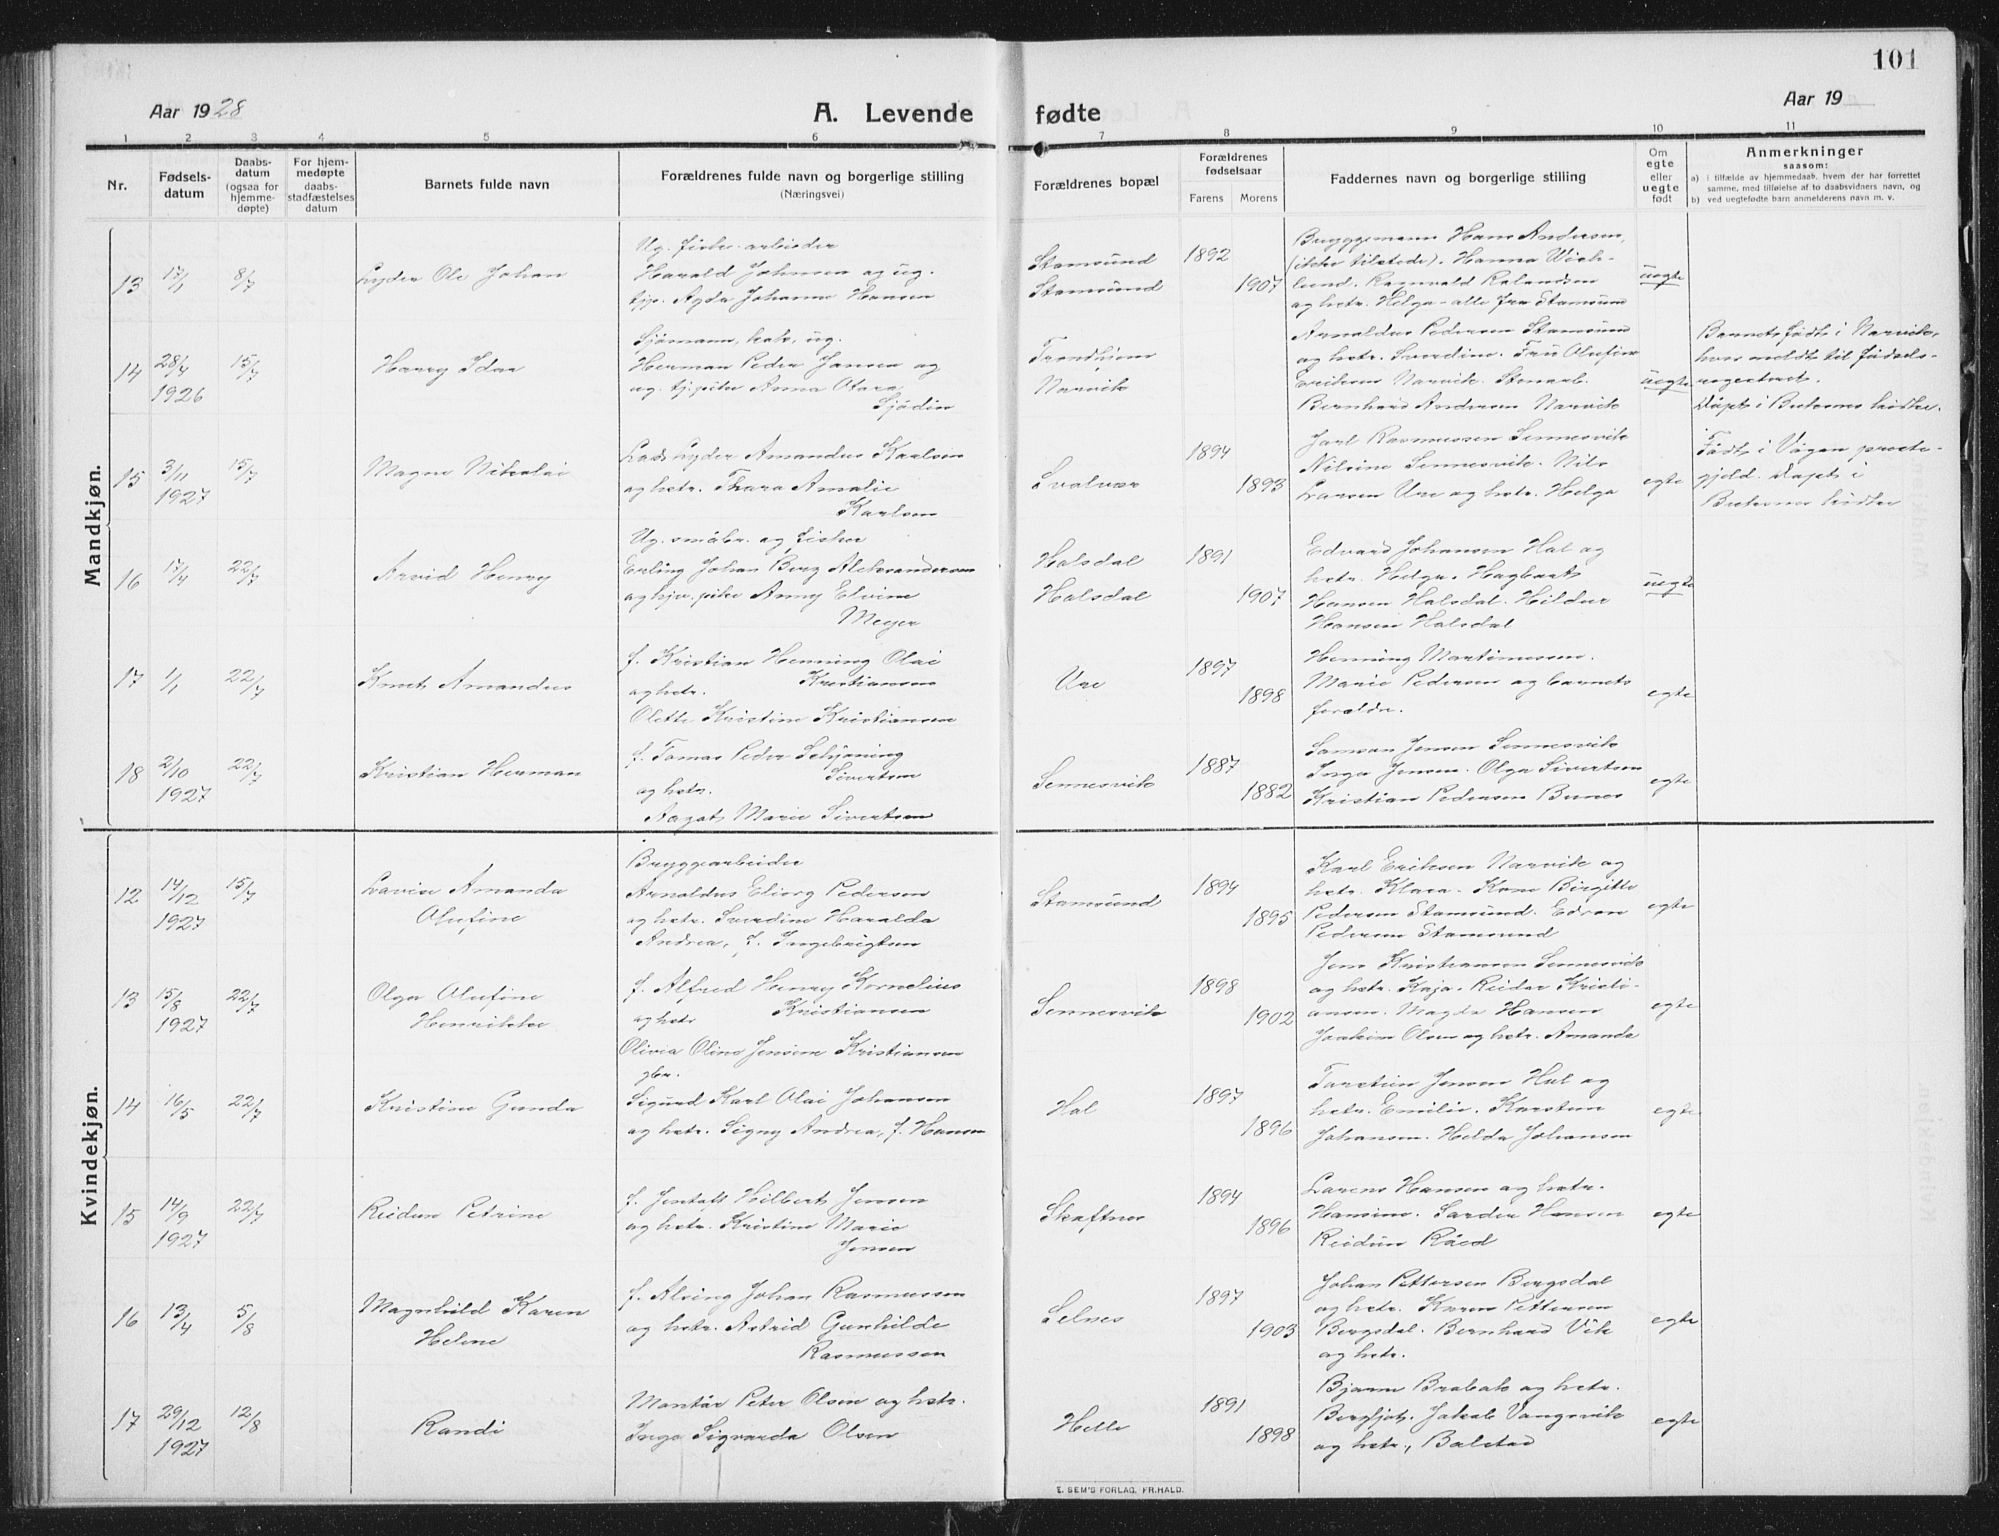 101
Aar 1928
A. Levende fødte
Aar 19
1 2 3 4 5 6 7 8 9 10 11
Nr.
Fødsels-
datum
Daabs-
datum
(ogsaa for
hjemme-
døpte)
For hjem-
medøpte
daabs-
stadfæstelses
datum
Barnets fulde navn
Forældrenes fulde navn og borgerlige stilling
(Næringsvei)
Forældrenes bopæl
Forældrenes
fødselsaar
Farens Morens
Faddernes navn og borgerlige stilling
Om
egte
eller
uegte
født
Anmerkninger
saasom:
a) i tilfælde av hjemmedaab, hvem der har forrettet
samme, med tilføielse af to daabsvidners navn, og
b) ved uegtefødte barn anmelderens navn m. v.
Mandkjøn.
13 17/1 8/7
Lyder Ole Johan
Ug. fisker arbeider
Harald Johnsen og ug.
tjp. Agda Johanne Hansen
Stamsund
Stamsund
1892
1907
Bryggemann Hans Andersen,
(ikke tilstede). Hanna Wich-
lund. Ragnvald Rolandsen
og hstr. Helga - alle fra Stamsund
uegte
14 28/4 1926 15/7
Harry Idar
Sjømann,
Herman Peder Jansen og
ug. tj.pike Anna Otara
Sjødin
Trondhjem
Narvik
Arnoldus Pedersen Stamsund
og hstr. Sverdine. Fru Olufine
Eriksen Narvik.
Bernhard Andersen Narvik
uegte
Barnet født i Narvik,
hvor meldt til fødsels-
registret.
Døpt i Buksnes kirke.
15 3/11 1927 15/7
Magne Nikolai
Lyder Amandus Karlsen
og hstr. Thora Amalie
Karlsen
Svolvær
1894
1893
Jarl Rasmussen Sennesvik
Nilsine Sennesvik. Nils
Larsen Ure og hstr. Helga
egte
Født i Vågan preste-
gjeld. Døpt i
Buksnes kirke
16 17/4 22/7
Arvid Henry
Ug. småbr. og fisker
Erling Johan Berg Aleksandersen
og hjv. pike Anny Elvine
Meyer
Halsdal
Halsdal
1891
1907
Edvard Johansen Hal og
hstr. Helga. Hagbart
Hansen Halsdal. Hildur
Hansen Halsdal
uegte
17 1/1 22/7
Knut Amandus
f. Kristian Henning Olai
Kristiansen
og hstr.
Olette Kristine Kristiansen
Ure
1897
1898
Henning Martinussen.
Marie Pedersen og barnets
foreldre.
egte
18 2/10 1927 22/7
Kristian Herman
f. Tomas Peder Schjøning
Sivertsen
og hstr.
Aagot Marie Sivertsen
Sennesvik
1887
1882
Samson Jensen Sennesvik
Inga Jensen. Olga Sivertsen
Kristian Pedersen Bunes
egte
Kvindekjøn.
12 14/12 1927 15/7
Lovise Amanda
Olufine
Bryggearbeider
Arnoldus Eliorg Pedersen
og hstr. Sverdine Haralda
Andrea, f. Ingebrigtsen
Stamsund
1894
1895
Karl Eriksen Narvik og
hstr. Klara. Kone Birgitte
Pedersen Stamsund. Edron
Pedersen Stamsund
egte
13 15/8 1927 22/7
Olga Olufine
Henrikke
f. Alfred Henry Kornelius
Kristiansen
og hstr
Olivia Oline Jensine Kristiansen
Sennesvik
1898
1902
Jens Kristiansen Sennesvik
og hstr. Kaja. Reidar Kristi-
ansen. Magda Hansen
Joakim Olsen og hstr. Amanda
egte
14 16/5 22/7
Kristine Gunda
gbr.
Sigurd Karl Olai Johansen
og hstr. Signy Andrea, f. Hansen
Hal
1897
1896
Torstein Jensen Hal og
hstr. Emilie. Karsten
Johansen. Helda Johansen
egte
15 14/9 1927 22/7
Reidun Petrine
f. Jentoft Hilbert Jensen
og hstr. Kristine Marie
Jensen
Skaftnes
1894
1896
Lorens Hansen og hstr.
Hansine. Hansen
Reidun Råed
egte
16 13/4 5/8
Magnhild Karen
Helene
f. Alving Johan Rasmussen
og hstr. Astrid Gunhilde
Rasmussen
Selnes
1897
1903
Johan Pettersen Bergsdal
og hstr. Karen Pettersen
Bergsdal. Bernhard Vik
og hstr.
egte
17 29/12 1927 12/8
Randi
Montør Peter Olsen og hstr.
Inga Sigvarda Olsen
Helle
1891
1898
Bjarne Brobak og hstr.
Bergljot. Jakob Vangsvik
og hstr., Balstad
egte
E. SEM'S FORLAG, FR.HALD.